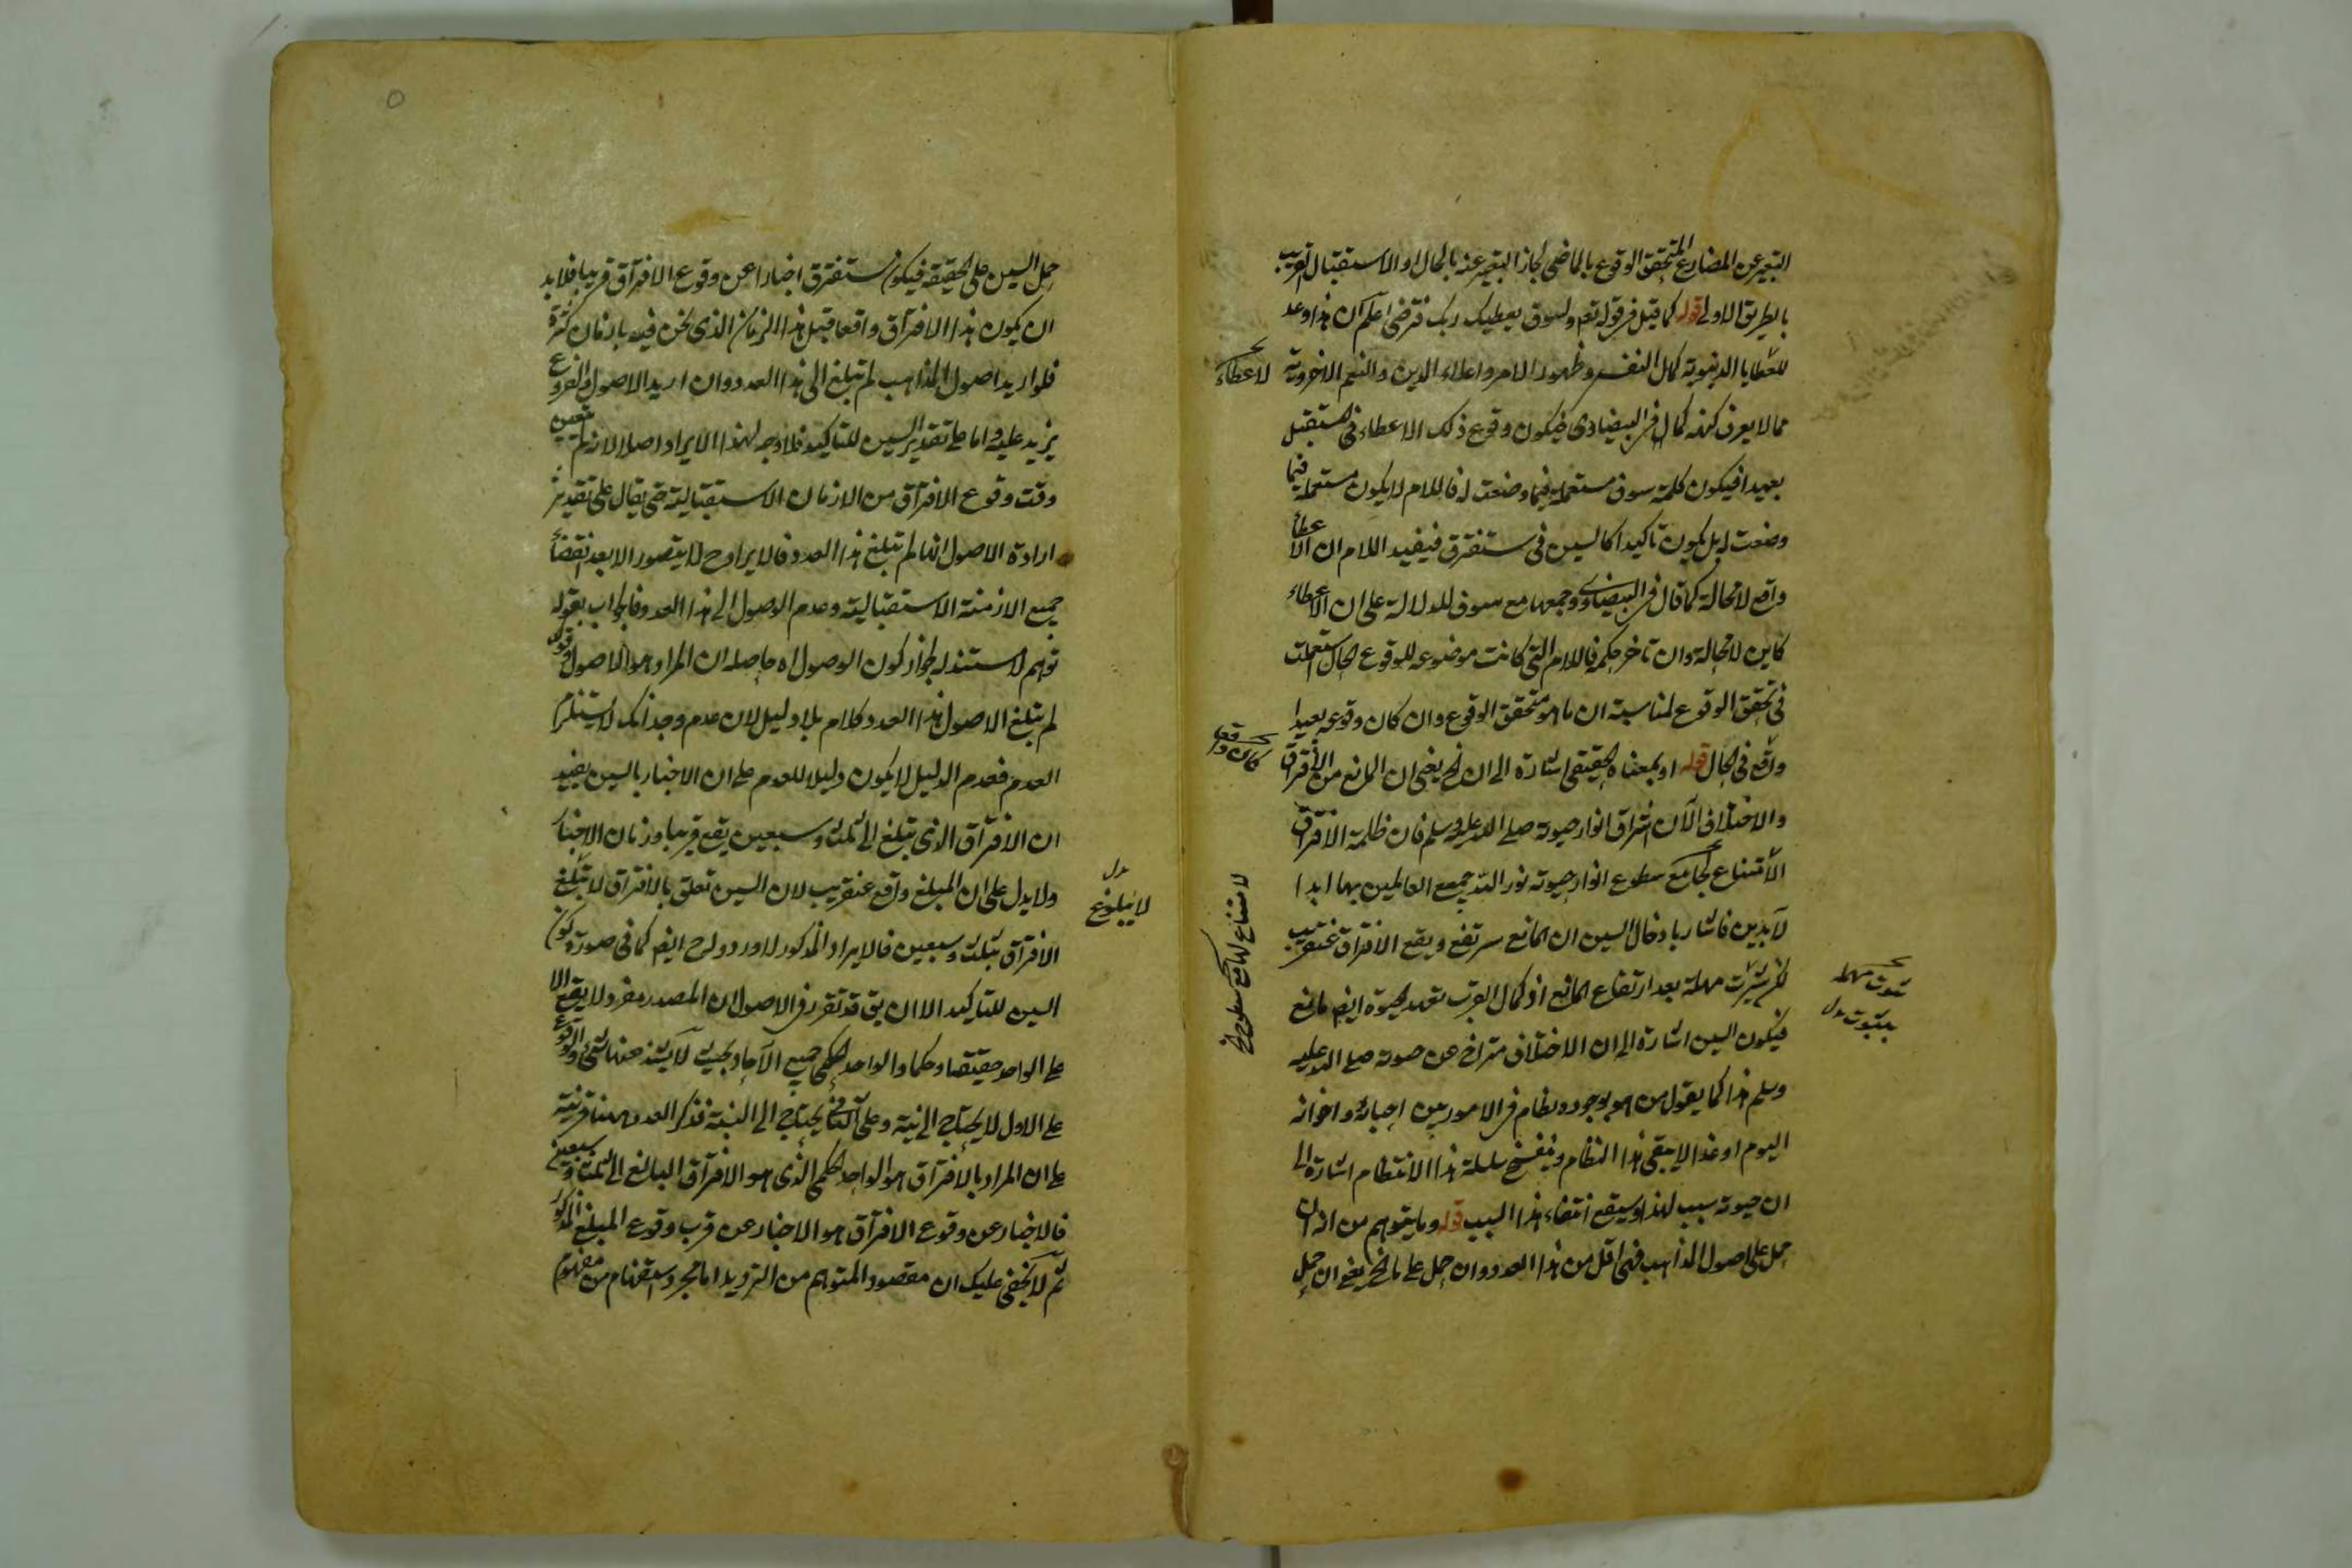 التعبير عن المضارع المتحقق الوقوع بالماضي لجاز التعبير عنه بالحال او الاستقبال القريب
بالطريق الاولى قوله كما قيل في قوله تعم ولسوف يعطيك ربك فترضى اعلم ان هذا وعد
للعطايا الدنيوية كمال النفس وظهور الامر واعلاء الدين والنعم الاخروية
لاعطاء
مما لا يعرف كنهه كمال في البيضاوي فيكون وقوع ذلك الاعطاء في المستقبل
بعيدا فيكون كلمة سوف مستعملة فيما وضعت له فاللام لا يكون مستعملة فيما
وضعت له بل يكون تاكيدا كالسين في ستفترق فيفيد اللام ان الاعطاء
واقع لا محالة كما قال في البيضاوي وجمعها مع سوف للدلالة على ان الاعطاء
كاين لا محالة وان تاخر لحكمة فاللام التي كانت موضوعه للوقوع الحال استعملت
في تحقق الوقوع لمناسبة ان ما هو متحقق الوقوع وان كان وقوعه بعيدا
كان واقع
واقع في الحال قوله او بمعناه الحقيقي اشارة الى ان الخ يعني ان المانع من الافتراق
والاختلاف الآن اشراق انوار حيوته صلى الله عليه وسلم فان ظلمة الافتراق
الامتناع لجامع سطوع انوار حيوته نور الله جميع العالمين بها ابدا
لامتناع لجامع سطوع
لآبدين فاشار بادخال السين ان المانع سيرتفع ويقع الافتراق عنقريب
مهلة بعد ارتفاع المانع اذ كمال القرب بعهد الحيوة ايضا مانع
فيكون السين اشارة الى ان الاختلاف متراخ عن حيوته صلى الله عليه
وسلم هذا كما يقول من هو بوجوده نظام في الامور بين احبائه واخوانه
اليوم او غدا لا يبقى هذا النظام وينفسخ سلسلة هذا الانتظام اشارة الى
ان حيوته سبب لهذا وسيقع انتفاء هذا السبب قوله وما يتوهم من انه ان
حمل على اصول المذاهب فهي اقل من هذا العدد وان حمل على ما الخ يعني ان حمل
حمل السين على الحقيقة فيكون ستفترق اخبارا عن وقوع الافتراق قريبا فلابد
ان يكون هذا الافتراق واقعا قبل هذا الزمان الذي نحن فيه بازمان كثرة
فلو اريد اصول المذاهب لم تبلغ الى هذا العدد وان اريد الاصول والفروع
يزيد عليه واما على تقدير السين للتاكيد فلا وجه لهذا الايراد اصلا لانه لم يتعين
وقت وقوع الافتراق من الازمان الاستقبالية حتى يقال على تقدير
ارادة الاصول انها لم تبلغ هذا العدد فالايراد ح لا يتصور الا بعد انقضاء
جميع الازمنة الاستقبالية وعدم الوصول الى هذا العدد فاجاب بقوله
توهم لا مستند له لجواز كون الوصول اه حاصله ان المراد هو الاصول وقوله
لم يتبلغ الاصول هذا العدد كلام بلا دليل لان عدم وجدانك لا يستلزم
العدم فعدم الدليل لا يكون دليلا للعدم على ان الاخبار بالسين يفيد
ان الافتراق الذي يتبلغ الى ثلث وسبعين يقع قريبا وزمان الاخبار
ولا يدل على ان المبلغ واقع عنقريب لان السين تعلق بالافتراق لا بتبلغ
لا ببلوغ
الافتراق بثلث وسبعين فالايراد المذكور لا ورود له ح ايضا كما في صورة كون
السين للتاكيد الا ان يق قد تقرر في الاصول ان المصدر مفرد لا يقع الا
على الواحد حقيقتا وحكما والواحد الحكمي جميع الآحاد بحيث لا يشذ عنها شيء والوقوع
على الاول لا يحتاج الى نية وعلى الثاني يحتاج الى النية فذكر العدد ههنا قرينة
على ان المراد بالافتراق هو الواحد الحكمي الذي هو الافتراق البالغ الى ثلث وسبعين
فالاخبار عن وقوع الافتراق هو الاخبار عن قرب وقوع المبلغ المذكور
ثم لا يخفى عليك ان مقصود المتوهم من الترديد اما مجرد استفهام من مفهوم